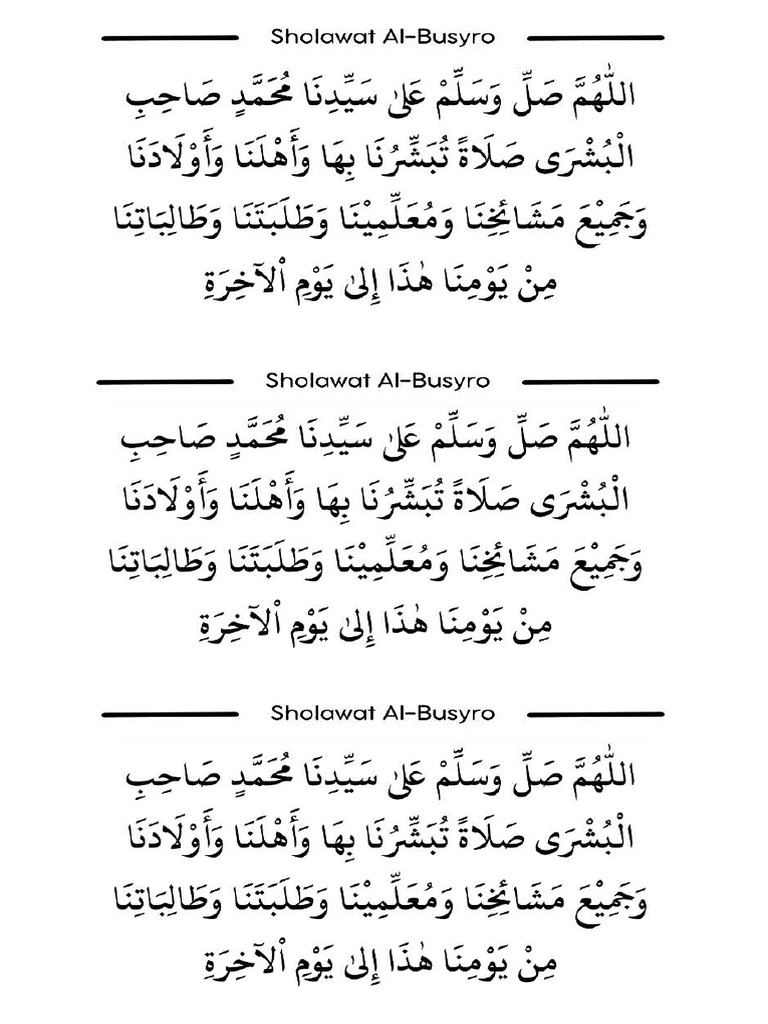 Sholawat Al-Busyro
اللّٰهُمَّ صَلِّ وَسَلِّمْ عَلىٰ سَيِّدِنَا مُحَمَّدٍ صَاحِبِ
الْبُشْرَى صَلَاةً تُبَشِّرُنَا بِهَا وَأَهْلَنَا وَأَوْلَادَنَا
وَجَمِيْعَ مَشَائِخِنَا وَمُعَلِّمِيْنَا وَطَلَبَتَنَا وَطَالِبَاتِنَا
مِنْ يَوْمِنَا هٰذَا إِلىٰ يَوْمِ اْلآخِرَةِ
Sholawat Al-Busyro
اللّٰهُمَّ صَلِّ وَسَلِّمْ عَلىٰ سَيِّدِنَا مُحَمَّدٍ صَاحِبِ
الْبُشْرَى صَلَاةً تُبَشِّرُنَا بِهَا وَأَهْلَنَا وَأَوْلَادَنَا
وَجَمِيْعَ مَشَائِخِنَا وَمُعَلِّمِيْنَا وَطَلَبَتَنَا وَطَالِبَاتِنَا
مِنْ يَوْمِنَا هٰذَا إِلىٰ يَوْمِ اْلآخِرَةِ
Sholawat Al-Busyro
اللّٰهُمَّ صَلِّ وَسَلِّمْ عَلىٰ سَيِّدِنَا مُحَمَّدٍ صَاحِبِ
الْبُشْرَى صَلَاةً تُبَشِّرُنَا بِهَا وَأَهْلَنَا وَأَوْلَادَنَا
وَجَمِيْعَ مَشَائِخِنَا وَمُعَلِّمِيْنَا وَطَلَبَتَنَا وَطَالِبَاتِنَا
مِنْ يَوْمِنَا هٰذَا إِلىٰ يَوْمِ اْلآخِرَةِ